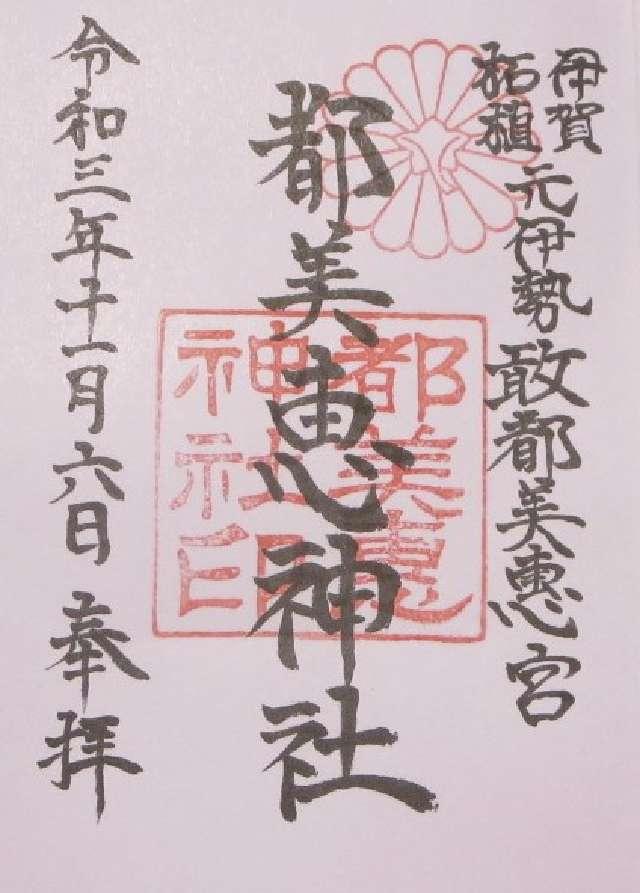 伊賀
柘植
元伊勢敢都美恵宮
都美恵神社
都美恵
神社印
令和三年十一月六日 奉拝